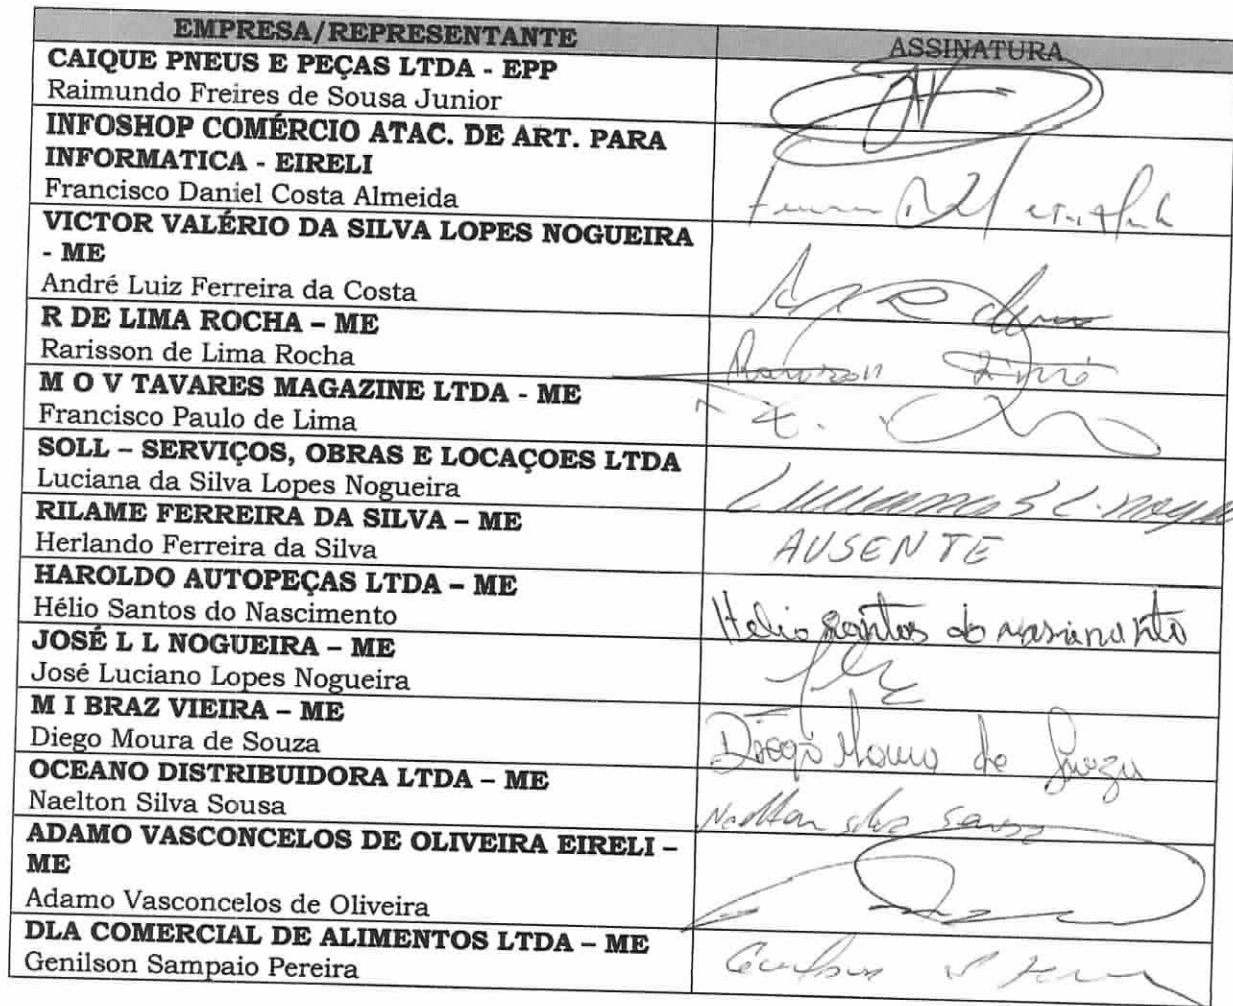 EMPRESA/REPRESENTANTE
ASSINATURA
CAIQUE PNEUS E PEÇAS LTDA - EPP
Raimundo Freires de Sousa Junior
INFOSHOP COMÉRCIO ATAC. DE ART. PARA
INFORMATICA - EIRELI
Francisco Daniel Costa Almeida
VICTOR VALÉRIO DA SILVA LOPES NOGUEIRA
- ME
André Luiz Ferreira da Costa
R DE LIMA ROCHA – ME
Rarisson de Lima Rocha
M O V TAVARES MAGAZINE LTDA - ME
Francisco Paulo de Lima
SOLL – SERVIÇOS, OBRAS E LOCAÇOES LTDA
Luciana da Silva Lopes Nogueira
RILAME FERREIRA DA SILVA – ME
Herlando Ferreira da Silva
AUSENTE
HAROLDO AUTOPEÇAS LTDA – ME
Hélio Santos do Nascimento
Helio Santos do Nascimento
JOSÉ L L NOGUEIRA – ME
José Luciano Lopes Nogueira
M I BRAZ VIEIRA – ME
Diego Moura de Souza
Diego Moura de Souza
OCEANO DISTRIBUIDORA LTDA – ME
Naelton Silva Sousa
Naelton Silva Sousa
ADAMO VASCONCELOS DE OLIVEIRA EIRELI –
ME
Adamo Vasconcelos de Oliveira
DLA COMERCIAL DE ALIMENTOS LTDA – ME
Genilson Sampaio Pereira